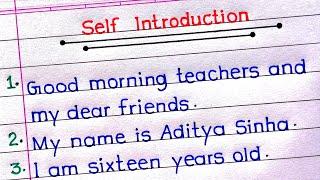 Self Introduction
1. Good morning teachers and
my dear friends.
2. My name is Aditya Sinha.
3. I am sixteen years old.